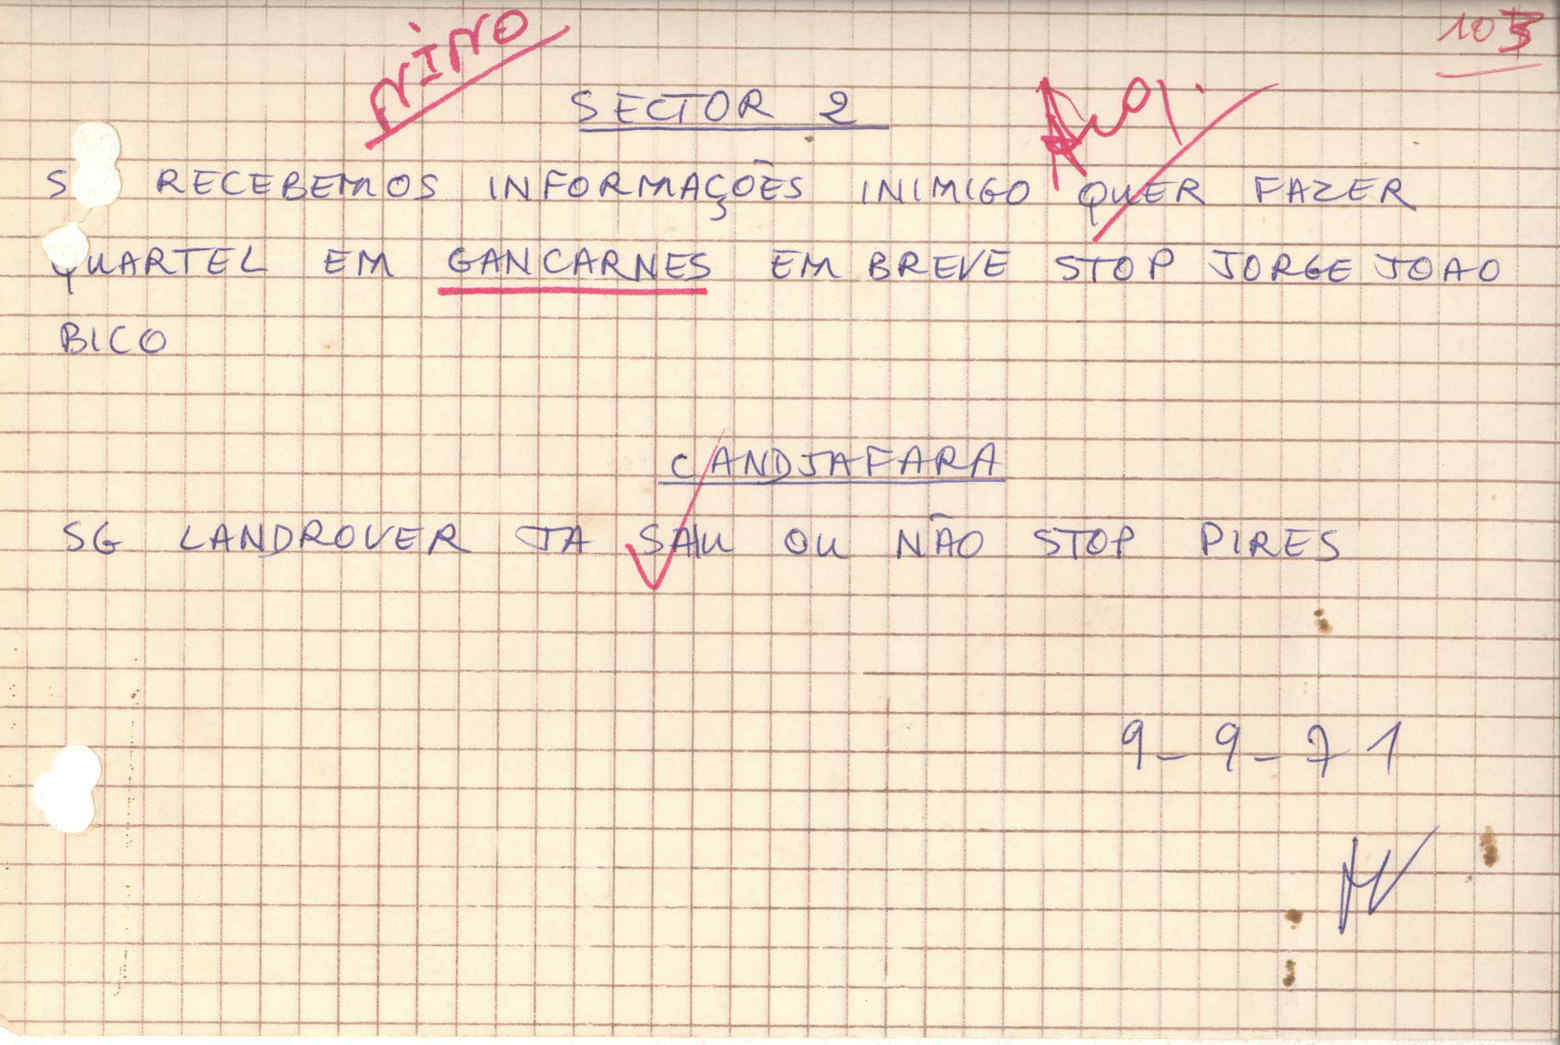 NINO
SECTOR 2
S RECEBEMOS INFORMAÇÕES INIMIGO QUER FAZER
QUARTEL EM GANCARNES EM BREVE STOP JORGE JOAO
BICO
CANDJAFARA
SG LANDROVER JA SAIU OU NÃO STOP PIRES
9-9-71